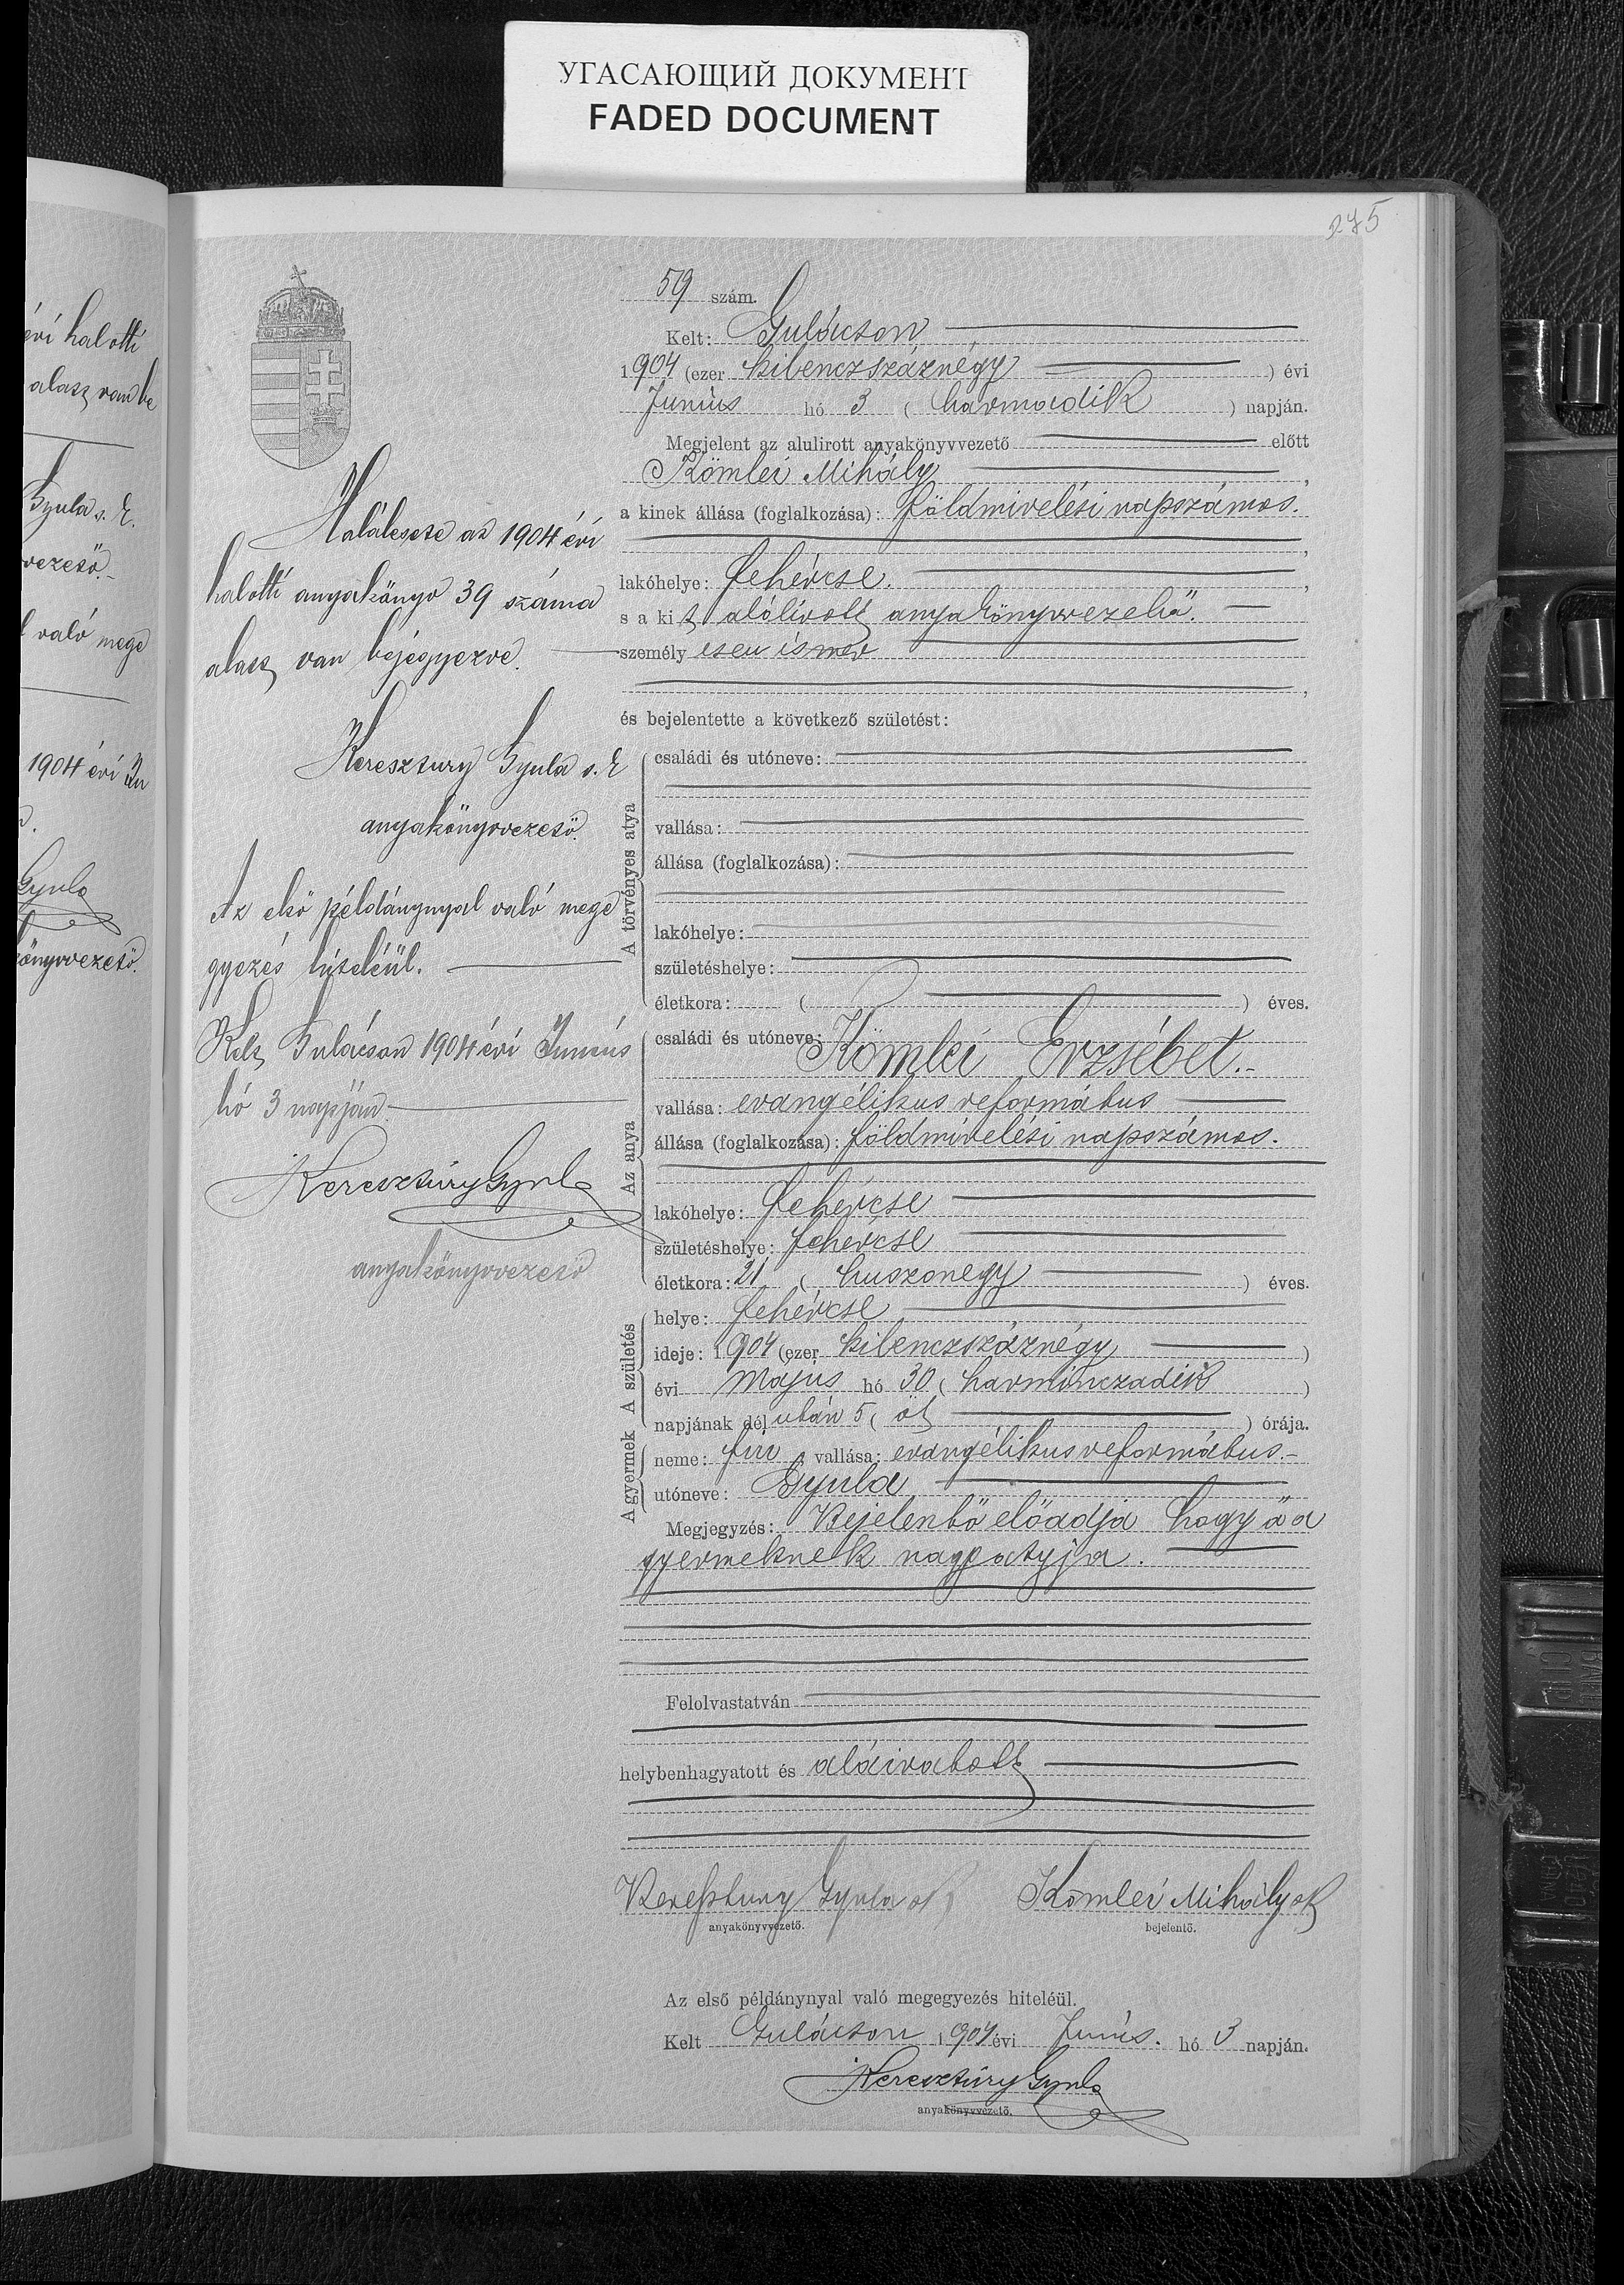 УГАСАЮЩИЙ ДОКУМЕНТ
FADED DOCUMENT
275
évi halotti
alatt van be
Gyula s. k.
vezető.
l való mege
1904 évi Jun
Gyula
könyvvezető.
Halálesete az 1904 évi
halotti anyakönyv 39 száma
alatt van béjegyezve.
Keresztury Gyula s. k
anyakönyvvezető.
Az első példánynyal való mege
gyezés hiteléül.
Kelt Gulácson 1904 évi Junius
hó 3 napján
Keresztúry Gyula
anyakönyvvezető
59 szám.
Kelt: Gulácson
1904 (ezer kilenczszáznégy ) évi
Junius hó 3 ( harmadik ) napján.
Megjelent az alulirott anyakönyvvezető előtt
Kömlei Mihály ,
a kinek állása (foglalkozása): földmivelési napszámos.
,
lakóhelye: fehércse. ,
s a kit alólirott anyakönyvvezető.
személyesen ismer
,
és bejelentette a következő születést:
A törvényes atya
családi és utóneve:
vallása:
állása (foglalkozása):
lakóhelye:
születéshelye:
életkora: ( ) éves.
Az anya
családi és utóneve: Kömlei Erzsébet.
vallása: evangélikus református
állása (foglalkozása): földmivelési napszámos.
lakóhelye: fehércse
születéshelye: fehércse
életkora: 21 ( huszonegy ) éves.
A gyermek A születés
helye: fehércse
ideje: 1904 (ezer kilenczszáznégy )
évi május hó 30 ( harminczadik )
napjának dél után 5 ( öt ) órája.
neme: fiu vallása: evangélikus református.
utóneve: Gyula
Megjegyzés: Bejelentő előadja hogy ő a
gyermeknek nagyatyja.
Felolvastatván
helybenhagyatott és aláiratott
Keresztury Gyula sk Kömlei Mihály sk
anyakönyvvezető. bejelentő.
Az első példánynyal való megegyezés hiteléül.
Kelt Gulácson 1904 évi Junius. hó 3 napján.
Keresztúry Gyula
anyakönyvvezető.